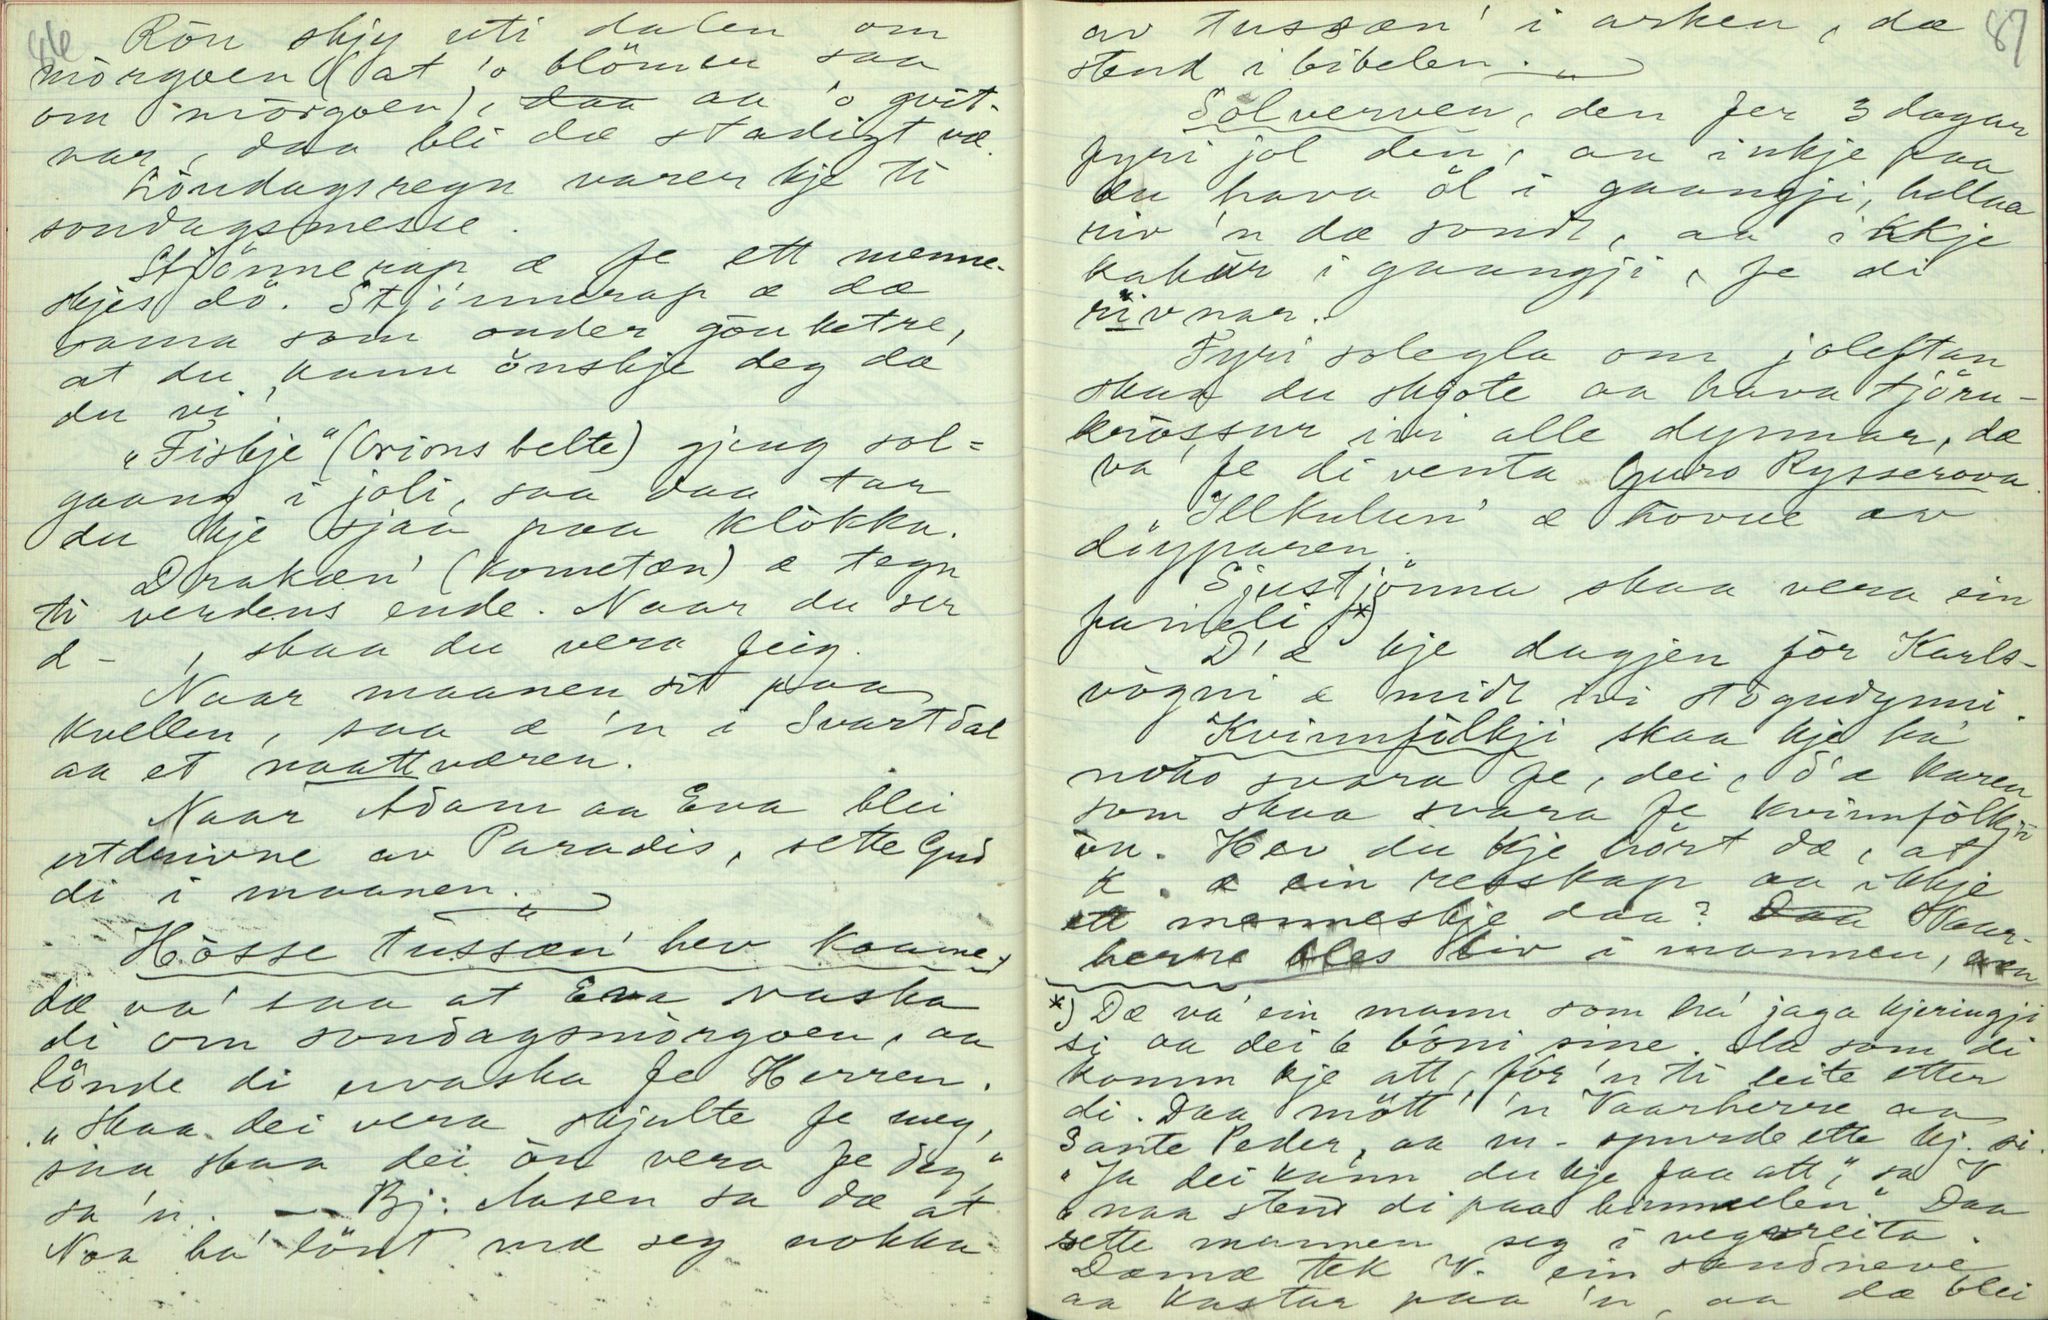 86
Rön skjy uti dalen om
mòrgoen (at 'o blömer saa
om mòrgoen), daa aa 'o gvit-
nar, daa bli dæ stadigt væ.
Löndagsregn varer kje ti
sondagsmesse.
Stjönnerap æ fe ett menne-
skjes dö. Stjönnerap æ dæ
sama som onder gouketre,
at du kann önskje deg dæ
du vi'.
"Fiskje" (Orions belte) gjeng sol-
gaang i joli, saa daa tar
du kje sjaa paa klòkka.
Drakæn' (kometæn) æ tegn
ti verdens ende. Naar du ser
d- , skaa du vera feig.
Naar maanen sit paa
kvellen, saa æ 'n i Svartdal
aa et naattværen.
Naar Adam aa Eva blei
utdrivne av Paradis, sette Gud
di i maanen.
Hòsse tussæn' hev kaame:
Dæ va' saa at Eva vaska
di om sondagsmòrgoen, aa
lönde di uvaska fe Herren.
"Skaa dei vera skjulte fe meg,
saa skaa dei òu vera fe deg"
sa 'n. — Bj: Aasen sa dæ at
Noa ha' lönt mæ seg nokka
87
av tussæn' i arken, dæ
stend i bibelen.
Solverven, den fer 3 dagar
fyri jol den, aa inkje faa
du hava öl i gaangji, hellaa
riv 'n dæ sondt, aa ikkje
kabur i gaangji, fe di
rivnar.
Fyri solegla om joleftan
skaa du skjote aa hava tjöru-
kròssur ivi alle dynnar, dæ
va' fe di venta Guro Rysserova.
"Illkulun' æ hovue av
döyparen.
Sjustjönna skaa vera ein
fameli *)
D'æ kje dagjen för Karls-
vògni æ midt ivi stògudynni.
Kvinnfòlkji skaa kje ha'
noko svara fe, dei, d'æ karen
som skaa svara fe kvinnfòlkji
òu. Hev du kje hört dæ, at
k. æ ein reisskap aa ikkje
ett menneskje daa? Daa Vaar-
herre bles liv i mannen, æen
*) Dæ va' ein mann som ha' jaga kjeringji
si aa dei 6 bòni sine. Ma som di
komm kje att, fòr 'n ti leite etter
di. Daa mött' 'n Vaarherre aa
Sante Peder, aa m- spurde ette kj. si.
"Ja dei kann du kje faa att," sa V
"naa stend di paa himmelen". Daa
sette mannen seg i vegsreita.
Dæmæ tek V. ein sandneve
aa kastar paa 'n, aa dæ blei